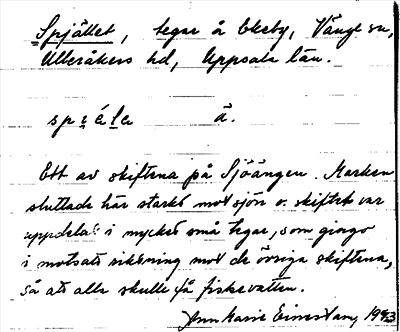 Spjället, tegar å Ekeby, Vänge sn,
Ulleråkers hd, Uppsala län.
spẹ́ḷa ä.
Ett av skiftena på Sjöängen. Marken
sluttade här starkt mot sjön o. skiftet var
uppdelat i mycket små tegar, som gingo
i motsatt riktning mot de övriga skiftena,
så att alla skulle få fiskevatten.
Ann Marie 1943